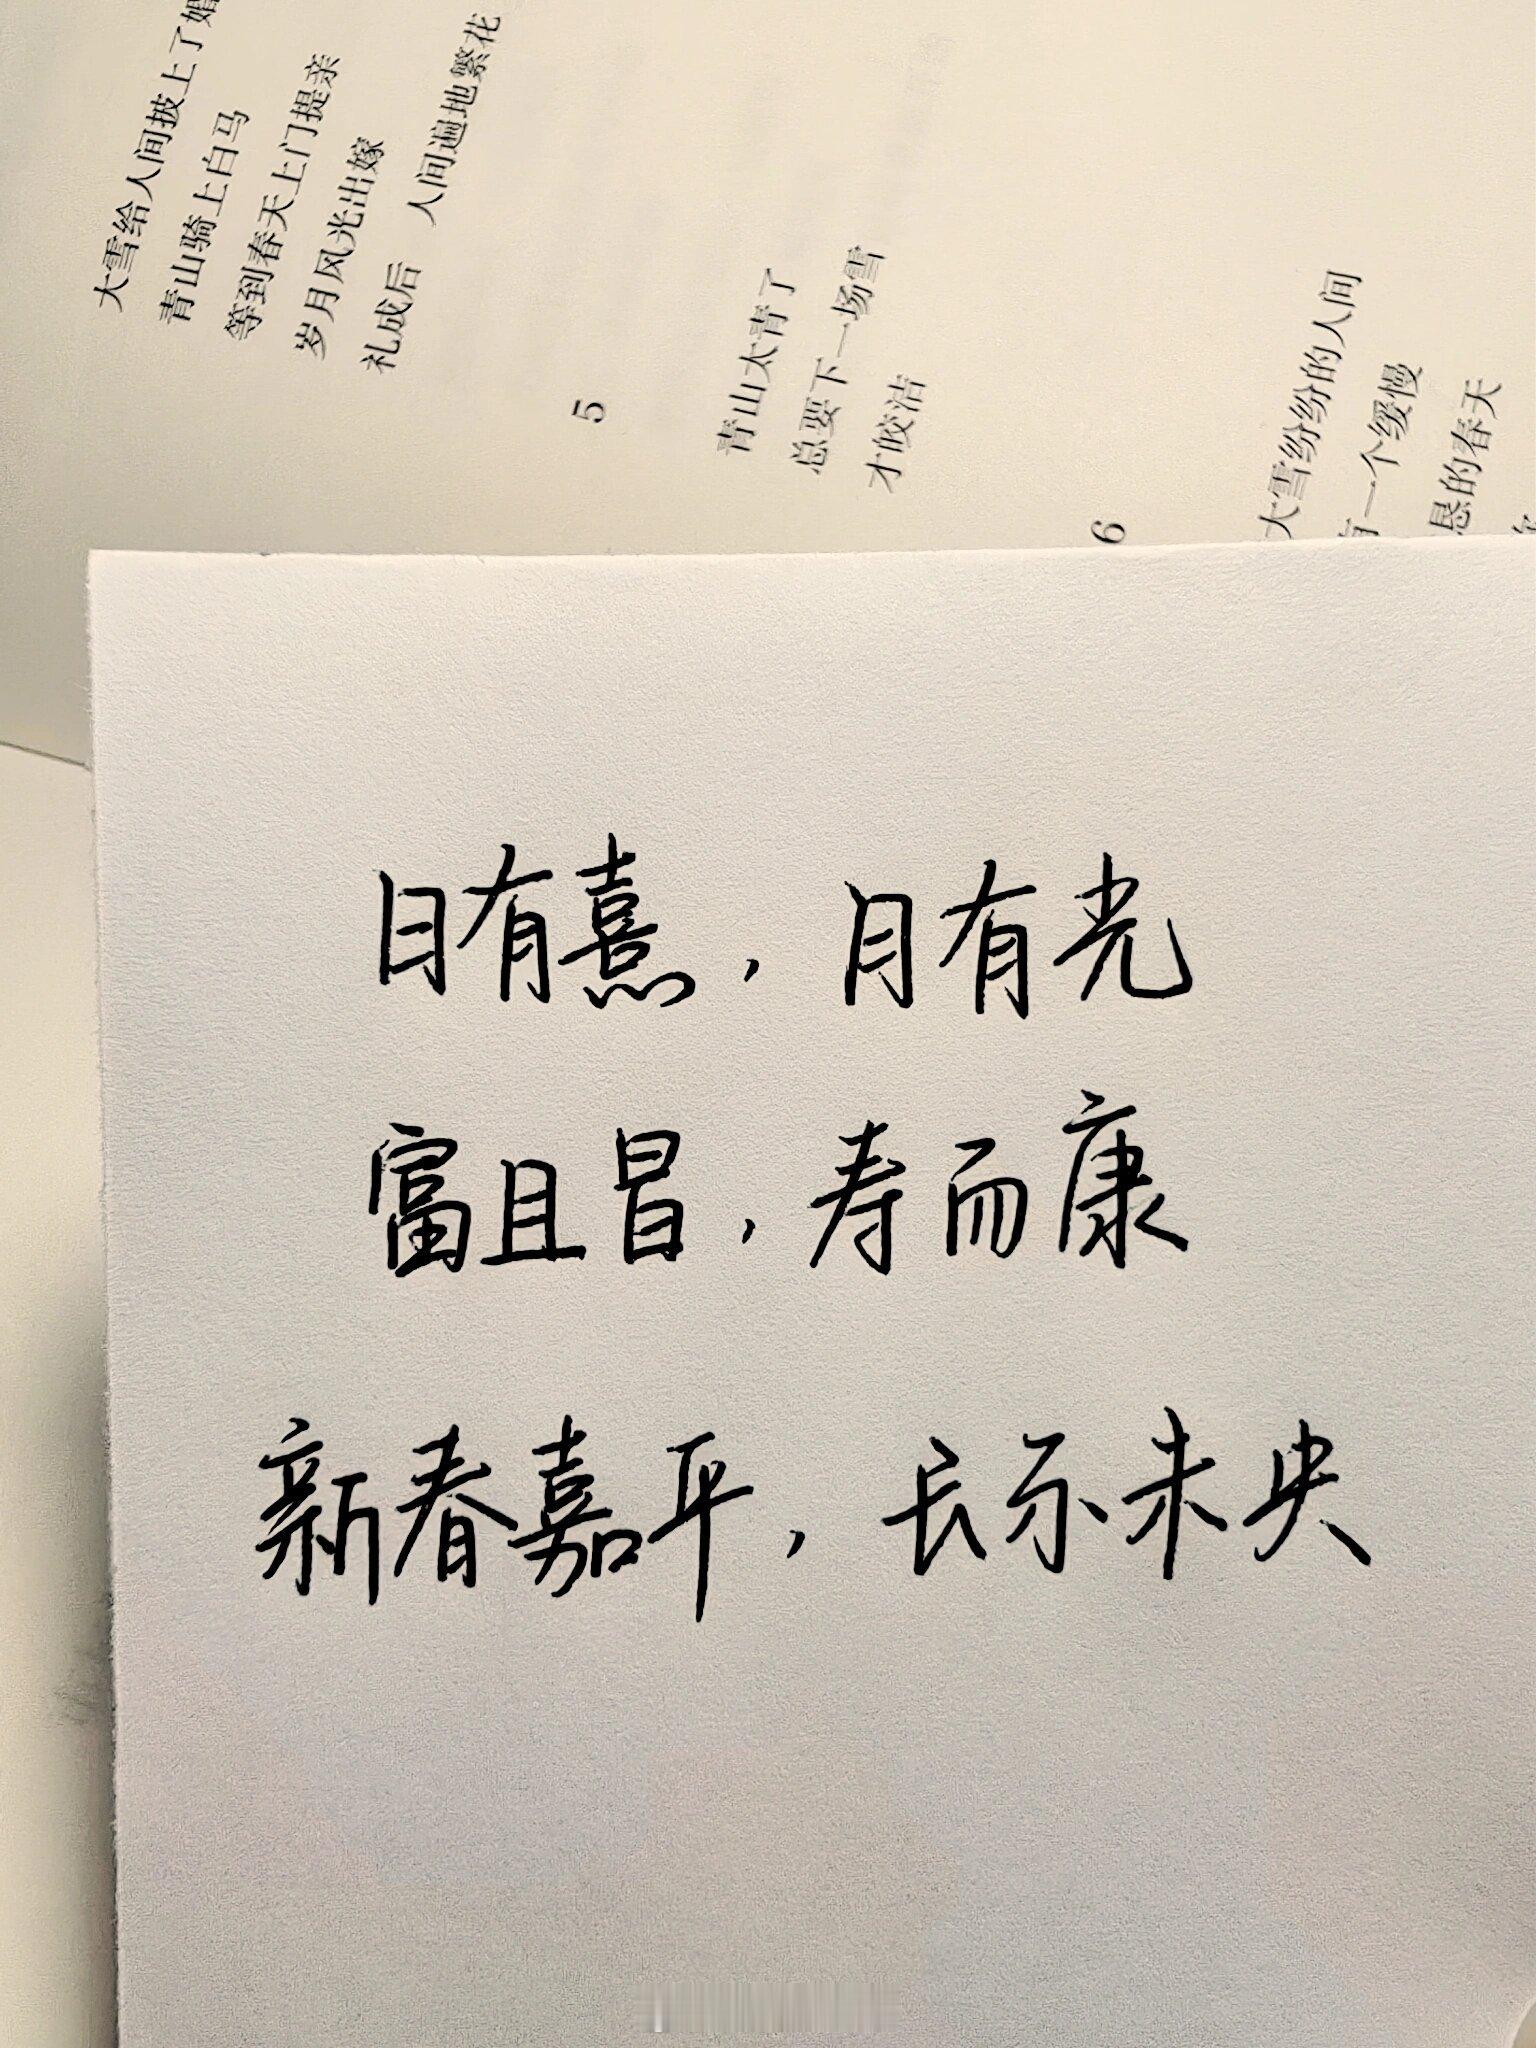 大雪给人间披上了婚
青山骑上白马
等到春天上门提亲
岁月风光出嫁
礼成后 人间遍地繁花
5
青山太青了
总要下一场雪
才皎洁
6
大雪纷纷的人间
有一个缓慢
恳的春天
日有熹，月有光
富且昌，寿而康
新春嘉平，长乐未央